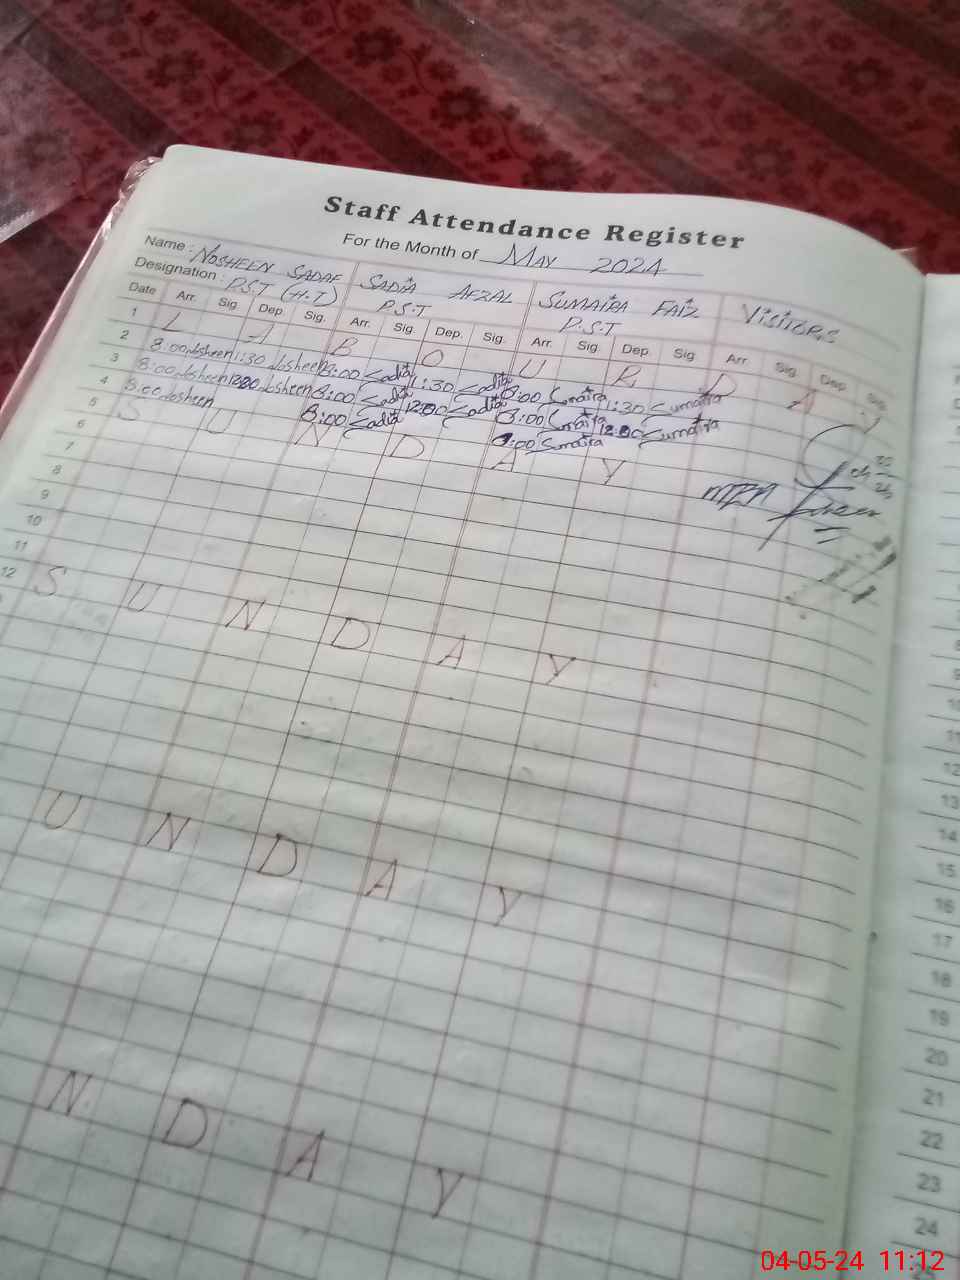 Staff Attendance Register
For the Month of MAY 2024
Name: NOSHEEN SADAF SADIA AFZAL SUMAIRA FAIZ VISITORS
Designation: P.S.T (H.T) P.S.T P.S.T
Date Arr. Sig. Dep. Sig. Arr. Sig. Dep. Sig. Arr. Sig. Dep. Sig. Arr. Sig. Dep. Sig.
1 L A B O U R D A Y
2 8:00 Nosheen 1:30 Nosheen 8:00 Sadia 1:30 Sadia 8:00 Sumaira 1:30 Sumaira
3 8:00 Nosheen 12:00 Nosheen 8:00 Sadia 12:00 Sadia 8:00 Sumaira 12:00 Sumaira
4 8:00 Nosheen 8:00 Sadia 8:00 Sumaira
5 S U N D A Y
6
7
8
9
10
11
12 S U N D A Y
U N D A Y
N D A Y
11
12
13
14
15
16
17
18
19
20
21
22
23
24
04-05-24 11:12